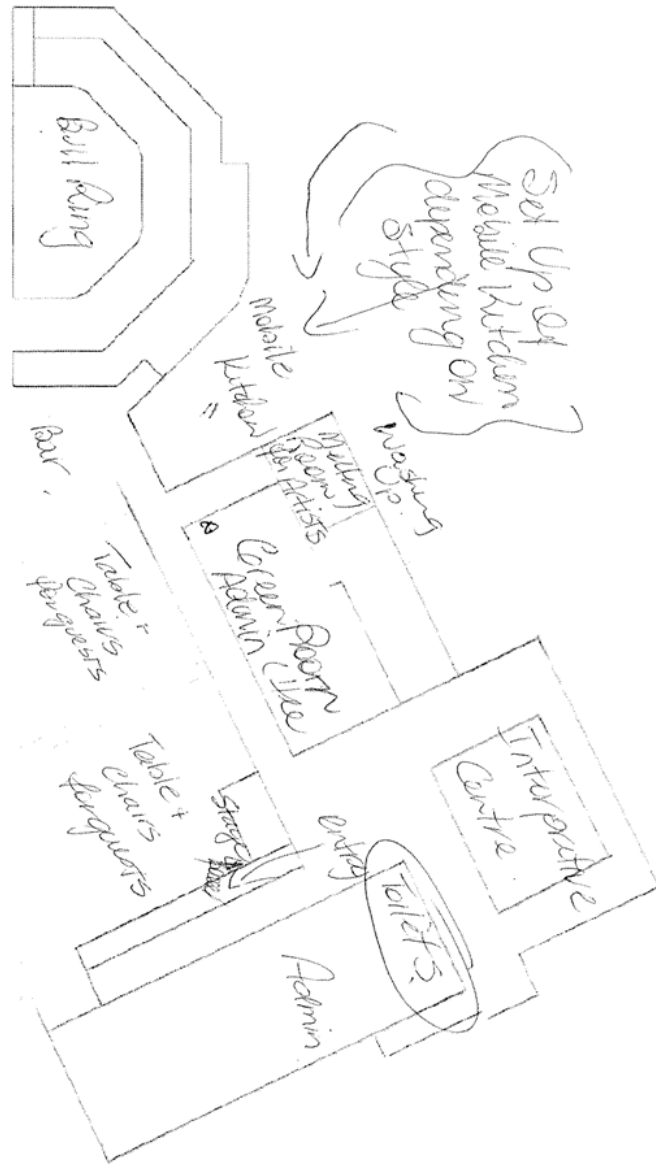 Bull Ring
Set Up of
Mobile Kitchen
depending on
Style
Mobile
Kitchen
Washing
Up.
Meeting
Room
for Artists
Green Room
Admin
Bar
Table +
Chairs
for guests
Table +
Chairs
for guests
Stage
entry
Toilets
Admin
Interpretive
Centre